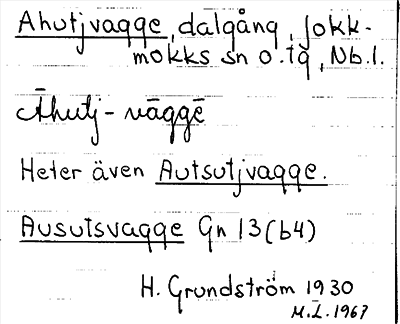 Ahutjvagge, dalgång, Jokk-
mokks sn o. tg, Nb. l.
Āhutj - vāggē
Heter även Autsutjvagge.
Ausutsvagge Gn 13 (b4)
H. Grundström 1930
M.L. 1967